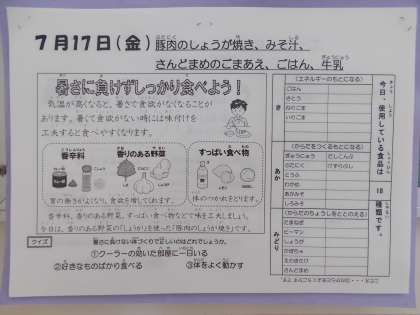 7月17日(金)豚肉のしょうが焼き、みそ汁、
さんどまめのごまあえ、ごはん、牛乳
暑さに負けずしっかり食べよう!
気温が高くなると、暑さで食欲がなくなることが
あります。暑くて食欲がない時には味付けを
工夫すると食べやすくなります。
香辛料
香りのある野菜
すっぱい食べ物
胃の働きがよくなり、食欲を増してくれます。
体のつかれをとります。
香辛料、香りのある野菜、すっぱい食べ物などで味を工夫しましょう。
今日は、香りのある野菜の「しょうが」を使った「豚肉のしょうが焼き」です。
クイズ
暑さに負けない体づくりで正しいのはどれでしょうか。
①クーラーの効いた部屋に一日いる
②好きなものばかり食べる
③体をよく動かす
今日、使用している食品は
18
種類です。
(エネルギーのもとになる)
き
ごはん
さとう
ねりごま
いりごま
(からだをつくるもとになる)
あか
ぎゅうにゅう
だしこんぶ
ぶたにく
けずりぶし
とうふ
わかめ
あかみそ
しろみそ
(からだのちょうしをととのえる)
みどり
たまねぎ
ピーマン
しょうが
かぼちゃ
えのきたけ
さんどまめ